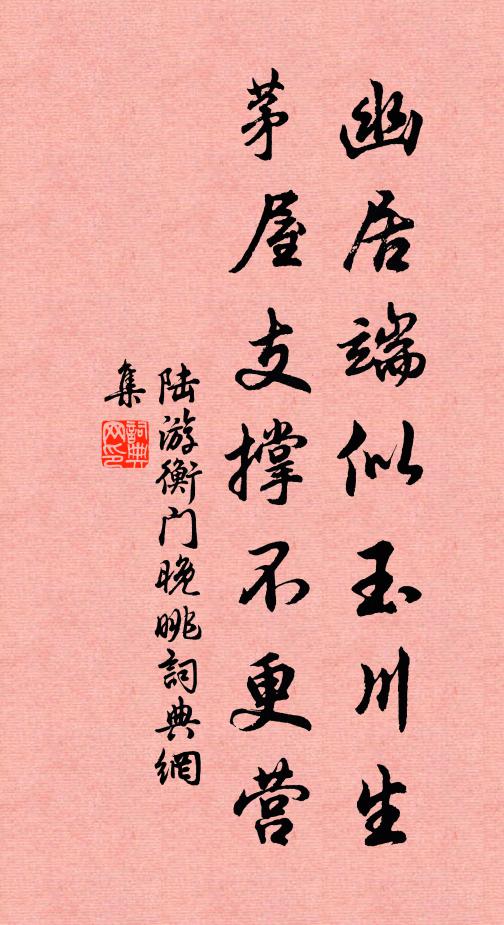 幽居端似玉川生
茅屋支撑不更营
陆游衡门晚眺詞典網
集
詞典网印